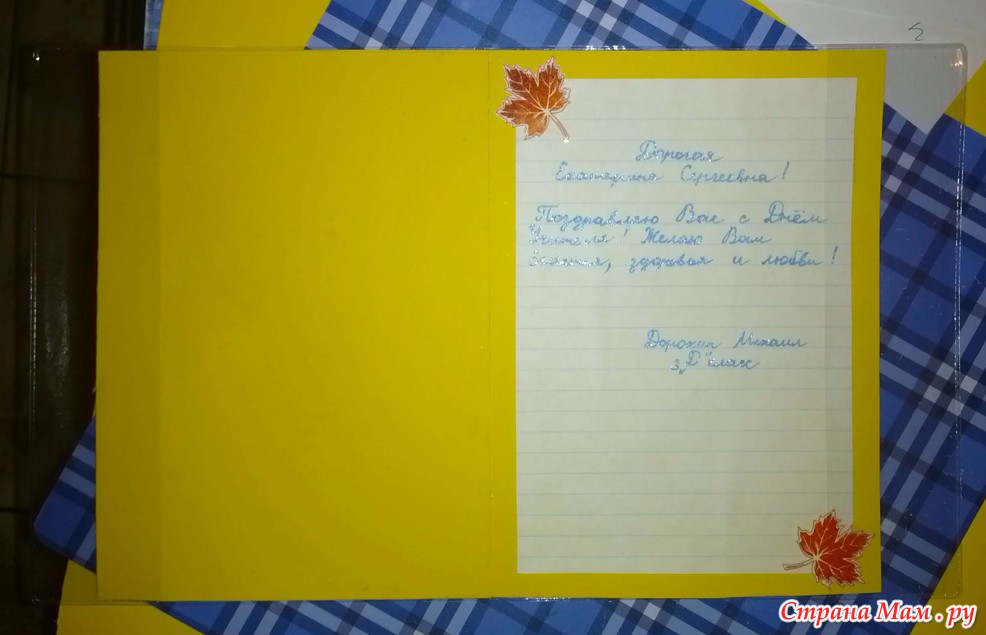 Дорогая
Екатерина Сергеевна!
Поздравляю Вас с Днём
Учителя! Желаю Вам
счастья, здоровая и любви!
Дорохин Михаил
3 „Б" класс
Страна Мам.ру